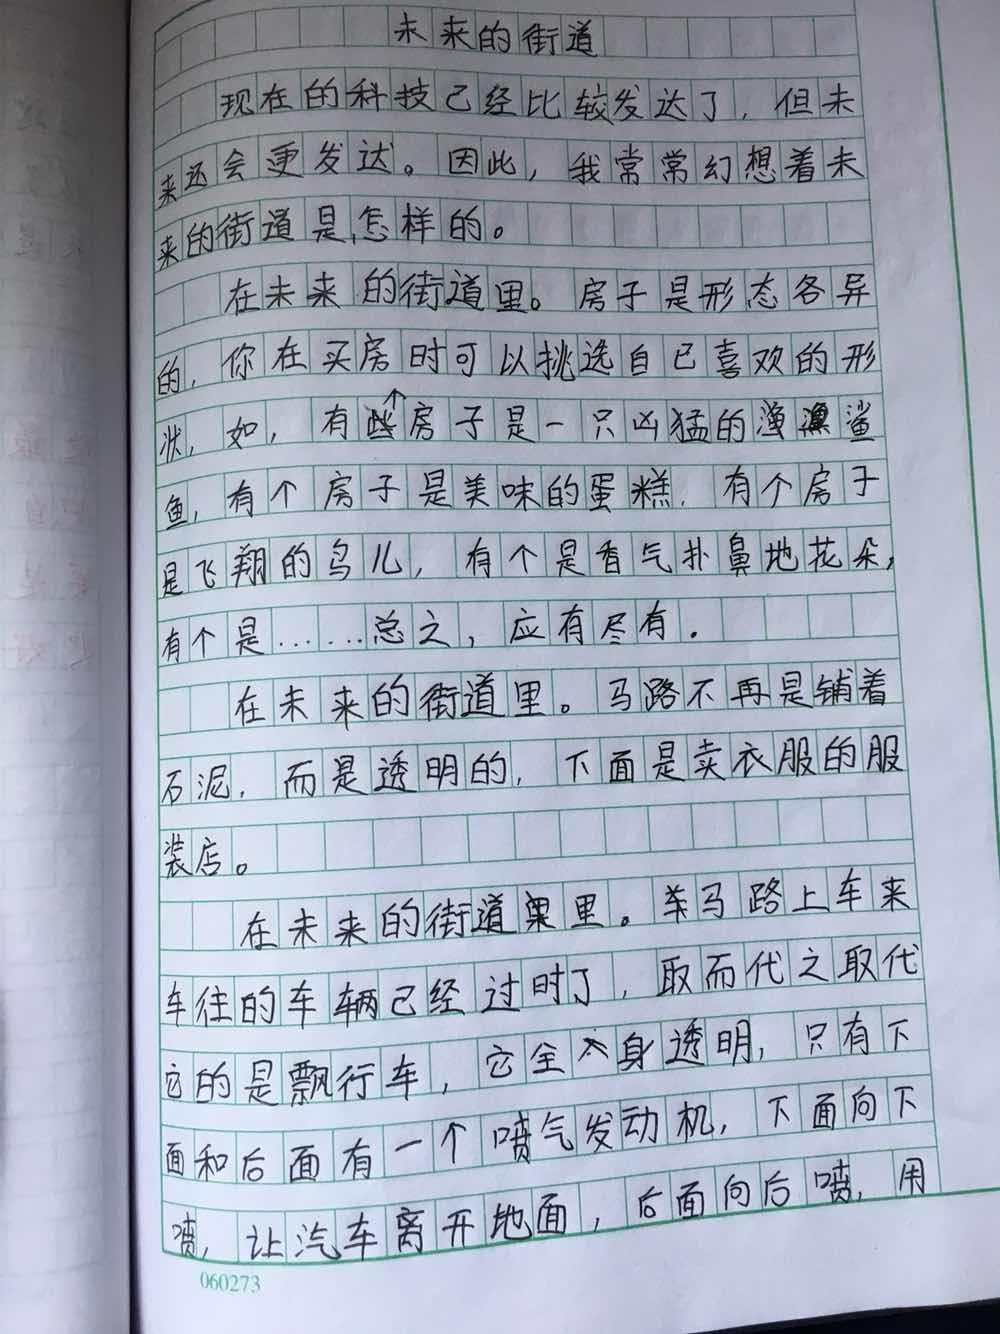 未来的街道
现在的科技已经比较发达了，但未
来还会更发达。因此，我常常幻想着未
来的街道是怎样的。
在未来的街道里。房子是形态各异
的，你在买房时可以挑选自己喜欢的形
状，如，有房子是一只凶猛的鲨
鱼，有个房子是美味的蛋糕，有个房子
是飞翔的鸟儿，有个是香气扑鼻地花朵，
有个是……总之，应有尽有。
在未来的街道里。马路不再是铺着
石泥，而是透明的，下面是卖衣服的服
装店。
在未来的街道里。马路上车来
车往的车辆已经过时了，取而代之取代
它的是飘行车，它全身透明，只有下
面和后面有一个喷气发动机，下面向下
喷，让汽车离开地面，后面向后喷，用
060273